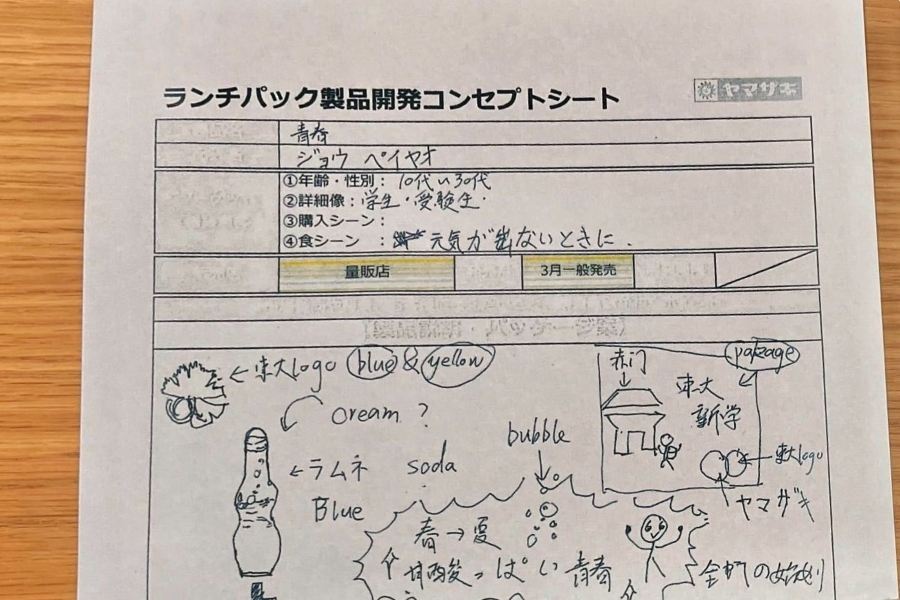 ランチパック製品開発コンセプトシート
ヤマザキ
青春
ジョウ ペイヤオ
①年齢・性別： 10代~30代
②詳細像：学生・受験生・
③購入シーン：
④食シーン ： 元気が出ないときに.
量販店
3月一般発売
東大logo blue & yellow
赤门
pakage
東大
新学
cream ?
bubble
←ラムネ soda
Blue
東大logo
ヤマザキ
春→夏
甘酸っぱい 青春